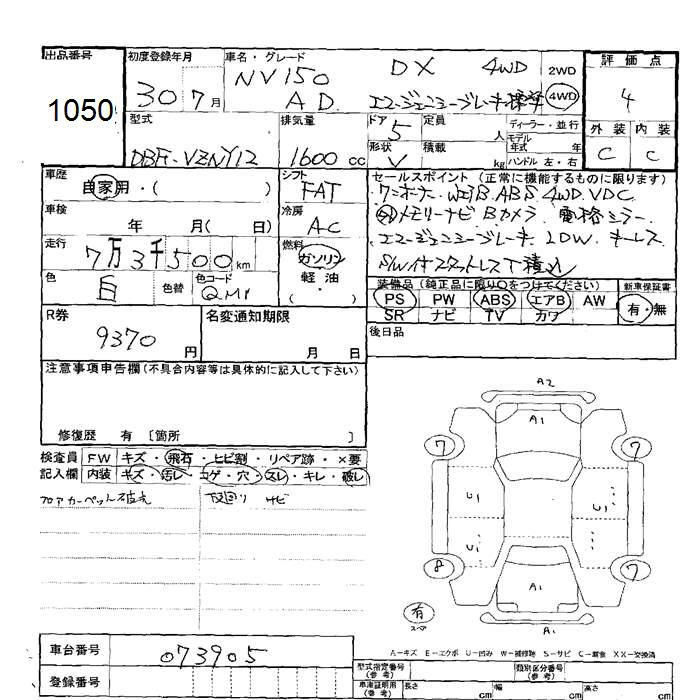 出品番号
1050
初度登録年月
30 7月
車名・グレード
NV150 DX 4WD
AD. エマージェンシーブレーキ標準
2WD
4WD
評価点
4
外装 内装
C C
型式
DBF-VZNY12
排気量
1600cc
ドア 5
定員 人
形状 V
積載 kg
ディーラー・並行
モデル年式 年
ハンドル 左・右
車歴
自家用・( )
車検
年 月( 日)
走行
7万3千500km
色 白
色替
色コード
QM1
シフト
FAT
冷房
AC
燃料
ガソリン
軽油
・
( )
セールスポイント (正常に機能するものに限ります)
ワンオーナー WエアB. ABS 4WD. VDC
メモリーナビ Bカメラ. 電格ミラー.
エマージェンシーブレーキ LDW. キーレス
S/W付スタットレスT積込
装備品 (純正品に限り〇をつけてください)
PS PW ABS エアB AW
SR ナビ TV カワ
新車保証書
有・無
後日品
R券
9370円
名変通知期限
月 日
注意事項申告欄(不具合内容等は具体的に記入して下さい)
修復歴 有 〔箇所 〕
検査員記入欄
FW キズ・飛石・ヒビ割・リペア跡・×要
内装 キズ・汚レ・コゲ・穴・スレ・キレ・破レ
フロアカーペット破れ
下回り サビ
A2
A1
7 7
U1 U1
U1 U1
8 7
A1
有
スペア
A1
A-キズ E-エクボ U-凹み W-補修跡 S-サビ C-腐食 XX-交換済
車台番号
073905
登録番号
型式指定番号(参考)
類別区分番号(参考)
車庫証明用(参考)
長さ cm 幅 cm 高さ cm